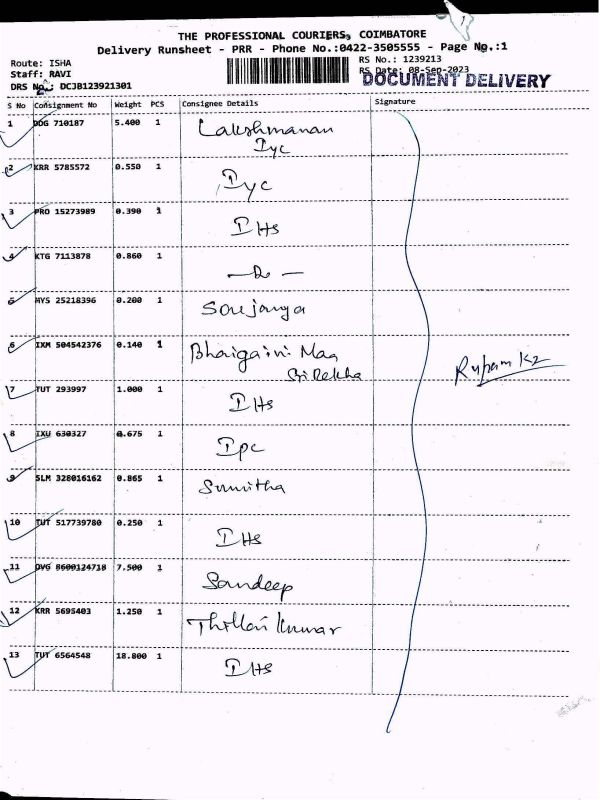 THE PROFESSIONAL COURIERS, COIMBATORE
Delivery Runsheet - PRR - Phone No.:0422-3505555 - Page No.:1
Route: ISHA
RS No.: 1239213
Staff: RAVI
RS Date: 08-Sep-2023
DOCUMENT DELIVERY
DRS No.: DCJB123921301
S No Consignment No Weight PCS Consignee Details Signature
1 DDG 710187 5.400 1 Lakshmanan
Iyc
2 KRR 5785572 0.550 1 Iyc
3 PRO 15273989 0.390 1 IHs
4 KTG 7113878 0.860 1
5 MYS 25218396 0.200 1 Soujanya
6 IXM 504542376 0.140 1 Bhairgaini Maa
Sri Rekha
7 TUT 293997 1.000 1 IHs
8 IXU 630327 0.675 1 Ipc
9 SLM 328016162 0.865 1 Sumitha
10 TUT 517739780 0.250 1 IHs
11 DVG 8600124718 7.500 1 Sandeep
12 KRR 5695403 1.250 1 Thillai Kumar
13 TUT 6564548 18.800 1 IHs